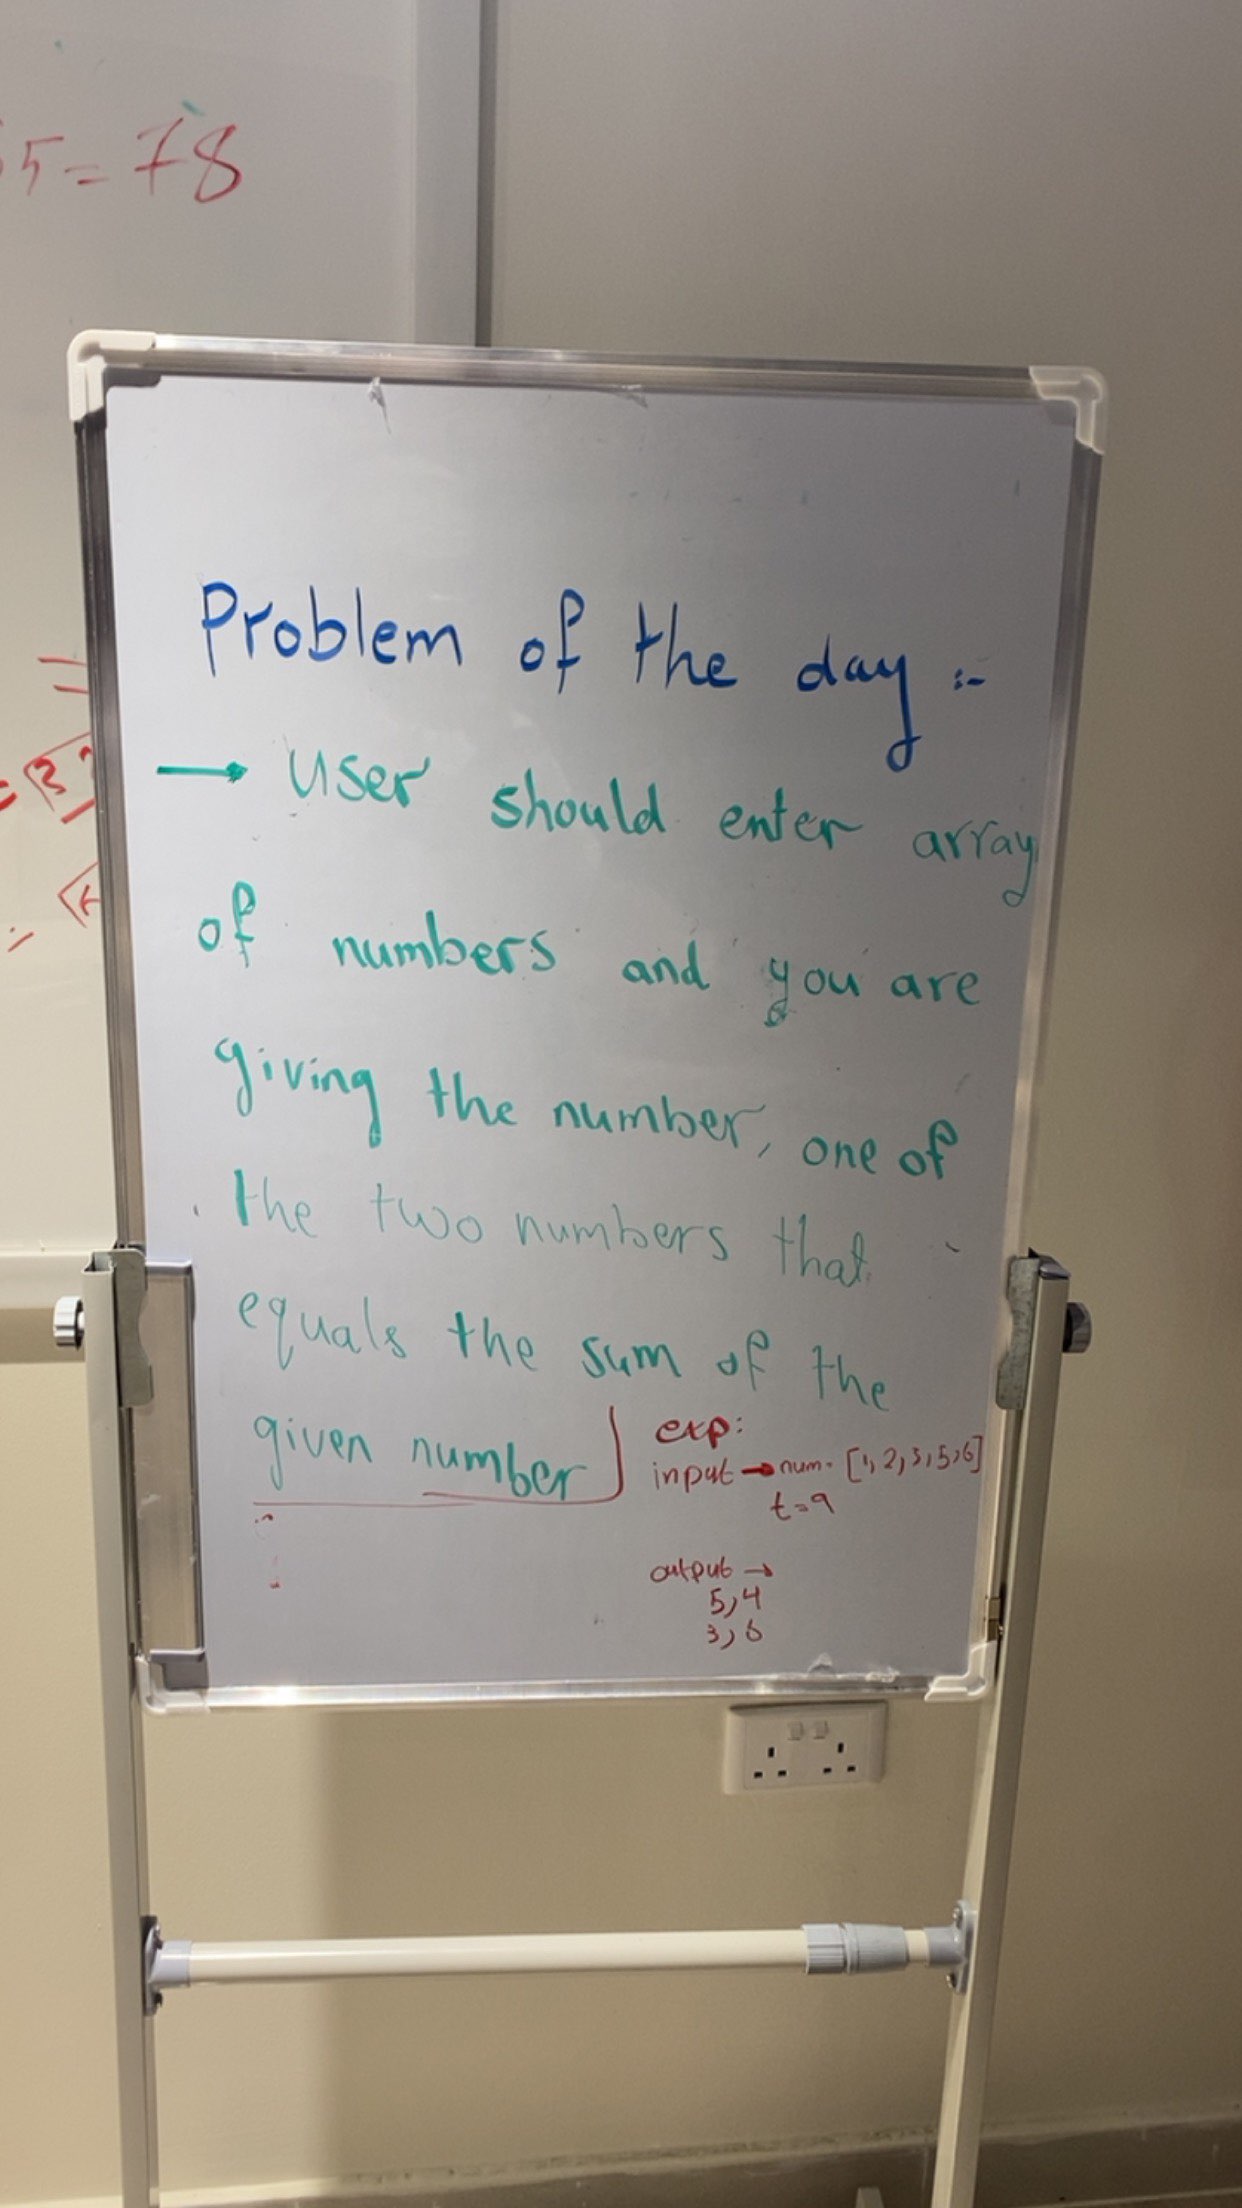 5=78
Problem of the day :-
→ user should enter array
of numbers and you are
giving the number, one of
the two numbers that
equals the sum of the
given number
exp:
input → num= [1,2,3,5,6]
t=9
output →
5,4
3,6